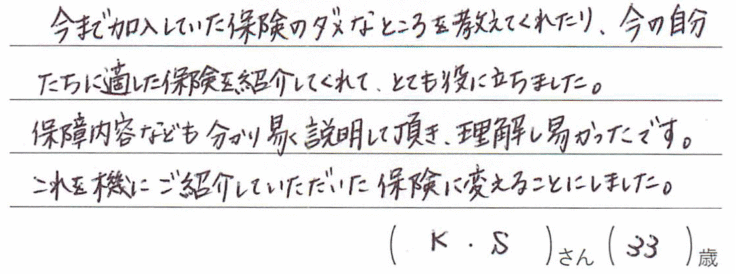 今まで加入していた保険のダメなところを教えてくれたり、今の自分
たちに適した保険を紹介してくれて、とても役に立ちました。
保障内容なども分かり易く説明して頂き、理解し易かったです。
これを機にご紹介していただいた保険に変えることにしました。
( K . S )さん ( 33 )歳